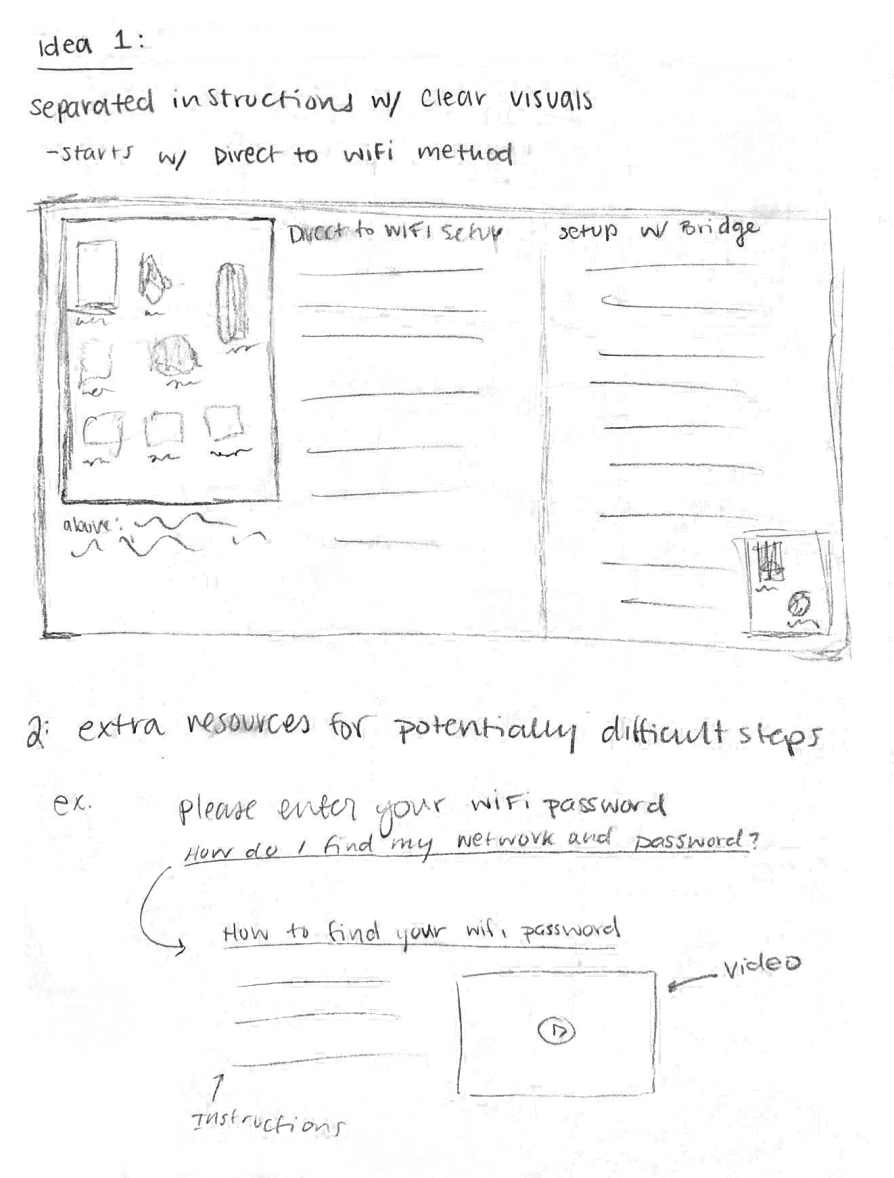 idea 1:
separated instructions w/ clear visuals
-starts w/ Direct to wifi method
Direct to WIFI setup
setup w/ Bridge
above:
2: extra resources for potentially difficult steps
ex.
please enter your wiFi password
How do I find my network and password?
How to find your wifi password
video
Instructions